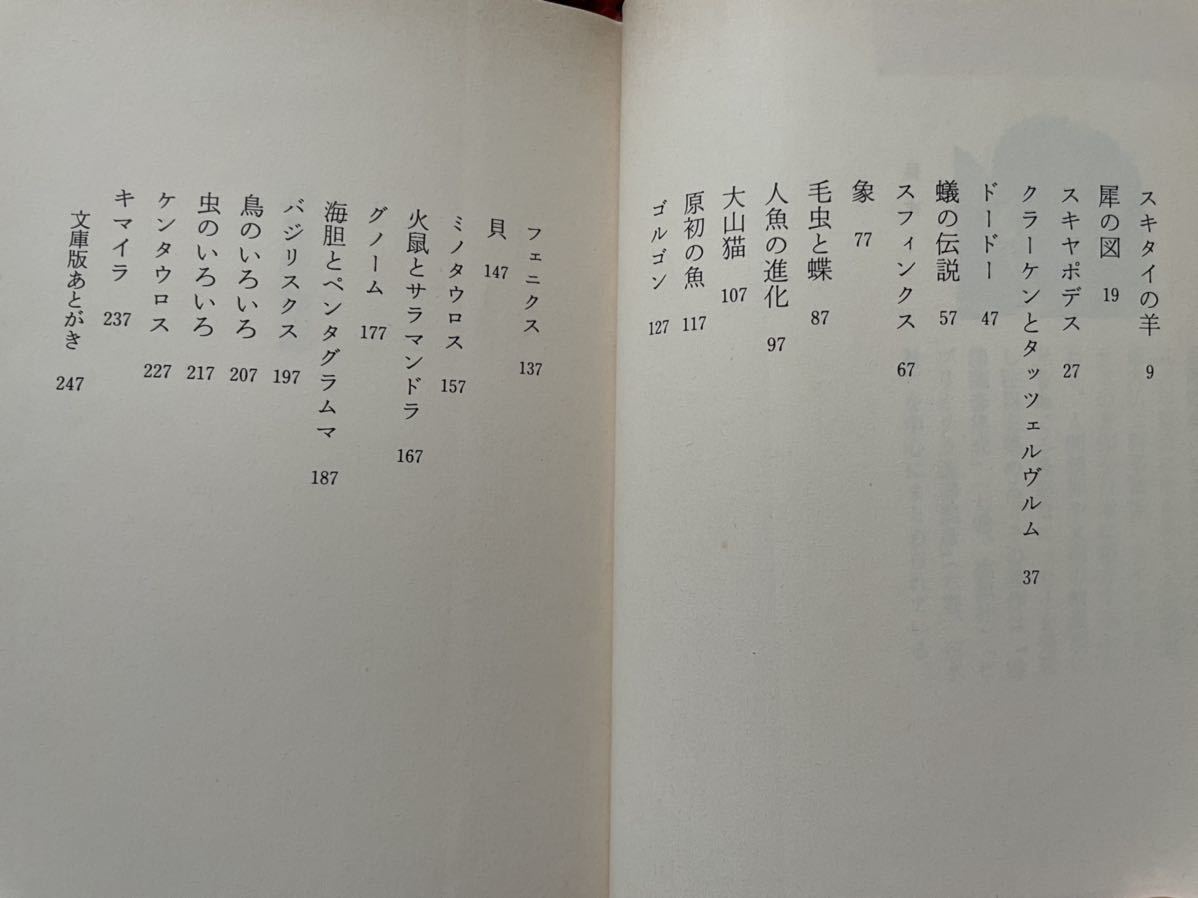 スキタイの羊 9
犀の図 19
スキヤポデス 27
クラーケンとタッツェルヴルム 37
ドードー 47
蟻の伝説 57
スフィンクス 67
象 77
毛虫と蝶 87
人魚の進化 97
大山猫 107
原初の魚 117
ゴルゴン 127
フェニクス 137
貝 147
ミノタウロス 157
火鼠とサラマンドラ 167
グノーム 177
海胆とペンタグラムマ 187
バジリスクス 197
鳥のいろいろ 207
虫のいろいろ 217
ケンタウロス 227
キマイラ 237
文庫版あとがき 247